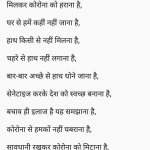 मिलकर कोरोना को हराना है,
घर से हमें कहीं नहीं जाना है,
हाथ किसी से नहीं मिलना है,
चहरे से हाथ नहीं लगाना है,
बार-बार अच्छे से हाथ धोने जाना है,
सेनेटाइज करके देश को स्वच्छ बनाना है,
बचाव ही इलाज है यह समझाना है,
कोरोना से हमको नहीं घबराना है,
सावधानी रखकर कोरोना को मिटाना है,